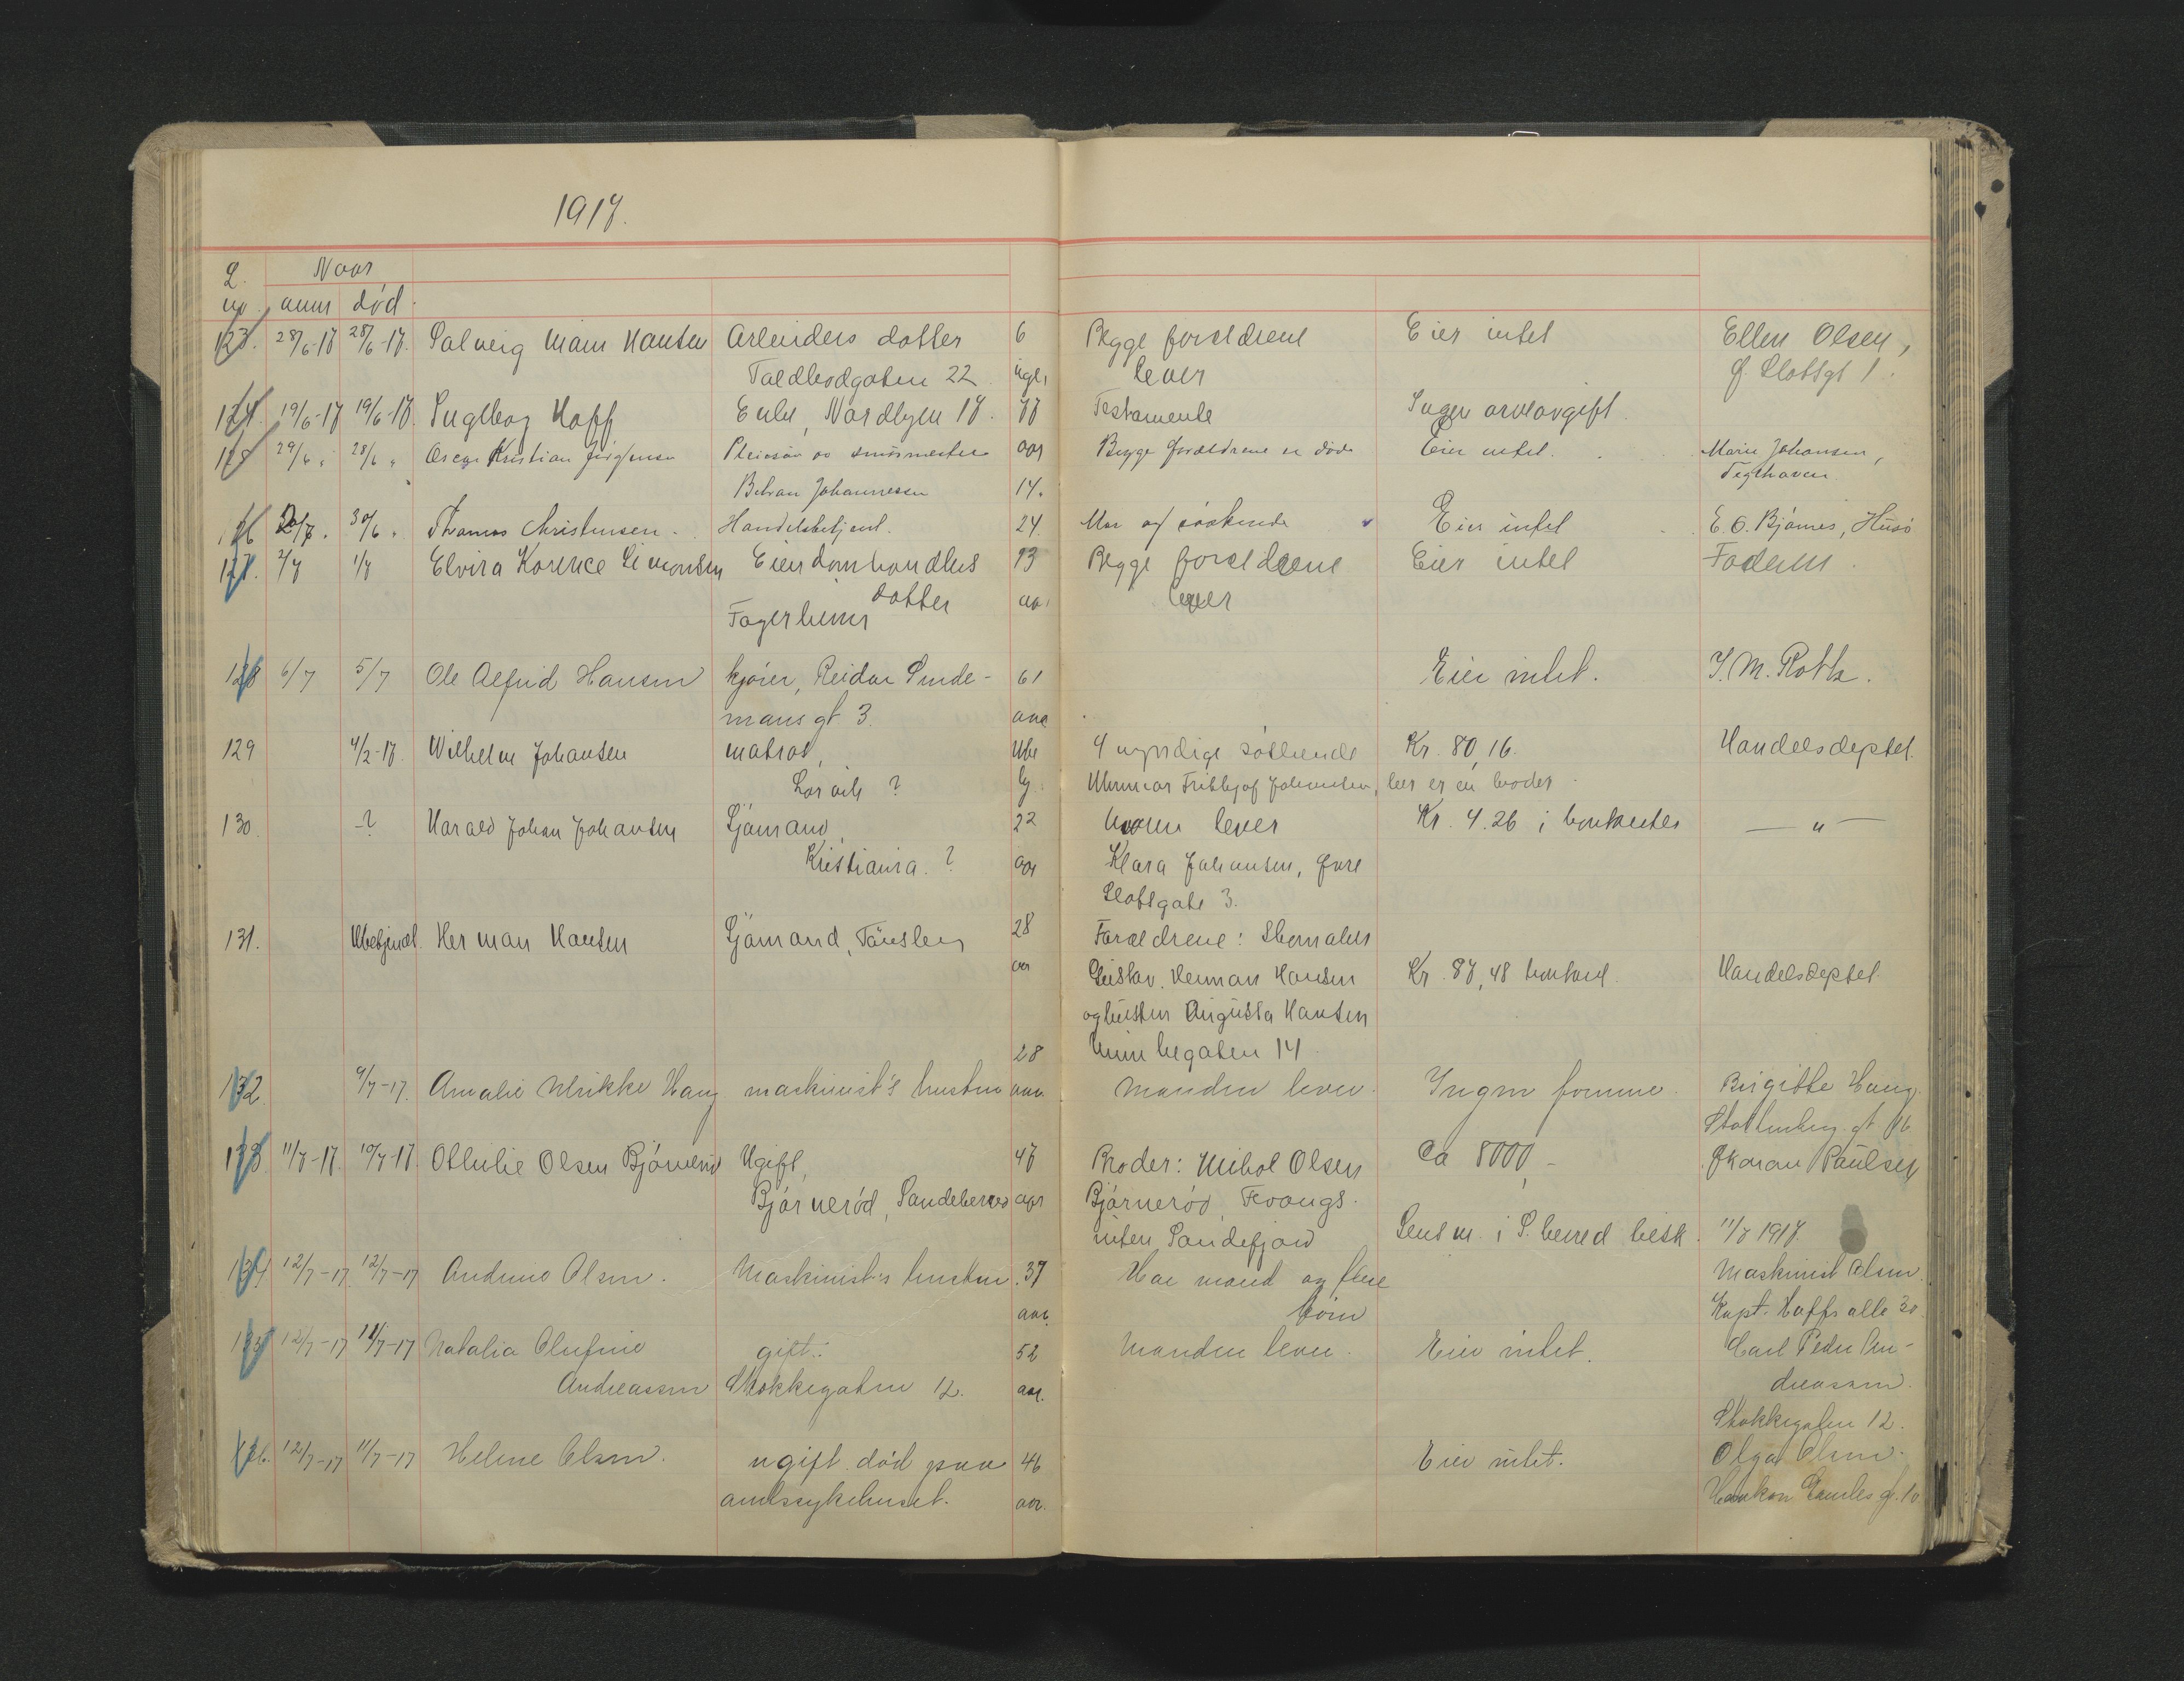 1917.
L. Naar
no. anm død.
123. 28/6-17 28/6-17. Solveig Marie Hansen Arbeiders datter 6 Begge forældrene Eier intet Ellen Olsen,
Toldbodgaten 22. ugl, lever Ø. Slottsgt 1.
124. 19/6-17 19/6-17. Ingeborg Hoff Enke, Nordbyen 17. 77 Testamente Ingen arveavgift.
125 29/6 " 28/6 " Oscar Kristian Jørgensen Pleiesøn av smørmester aar Begge forældrene er døde Eier intet. Marie Johansen,
Johannessen 14. Teglhaven.
126 2/7. 30/6 " Thomas Christensen. Handelsbetjent. 24. Mor og søskende Eier intet E. O. Bjørnes, Husø
127. 2/7 1/7 Elvira Simonsen Eiendomhandlers 13 Begge forældrene Eier intet Faderen.
datter aar lever
Fagerheim
128 6/7 5/7 Ole Alfred Hansen kjører, Reidar Sende- 61 Eier intet. J. M. Roth.
mans gt 3. aar
129 4/2-17 Wilhelm Johansen matros, Ube 4 myndige søskende Kr. 80,16. Handelsdeptet.
Larvik ? Fridtjof Johansen, her er en broder.
130. -? Harald Johan Johansen Sjømand, 22 Moren lever Kr. 4.26 i kontanter — " —
Kristiania. ? aar Klara Johansen, Øvre
Slottsgate 3.
131. Ubekjendt. Herman Hansen Sjømand, Tønsberg 28 Forældrene:
aar Gustav Herman Hansen Kr. 87,48 kontant Handelsdeptet.
og hustru Augusta Hansen
28 14.
132. 9/7-17. Amalie Ulrikke Haug maskinist's hustru aar. Manden lever. Ingen formue. Birgitte Haug.
Stoltenberg. gt 16
133. 11/7-17. 10/7-17 Othilie Olsen Bjørnerød Ugift, 47 Broder: Mikal Olsen Ca 8000,- Paulsen
Bjørnerød, Sandeherred aar Bjørnerød, Fevangs-
Sandefjord Lensm. i S. herred besk. 11/7 1917.
134 12/7-17 12/7-17 Andrine Olsen. Maskinist's hustru. 37 Har mand og flere Maskinist Olsen.
aar. børn Kapt. Hoffs alle 30.
135 12/7-17 11/7-17 Natalia Olufine gift. 52 Manden lever. Eier intet. Carl Peder An-
Andreassen Stokkegaten 12. aar. dreassen.
Stokkegaten 12.
136. 12/7-17 11/7-17 Helene Olsen. ugift. død paa 46 Eier intet. Olga Olsen.
amtssykehuset. aar. Haakon Gamles gt. 10